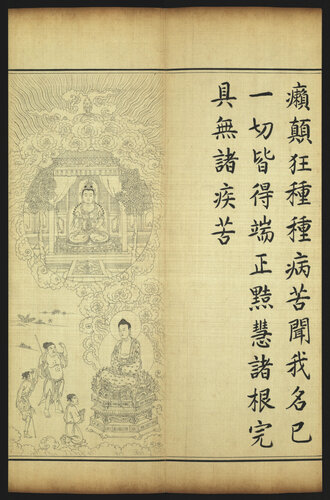 癩顛狂種種病苦聞我名已
一切皆得端正黠慧諸根完
具無諸疾苦